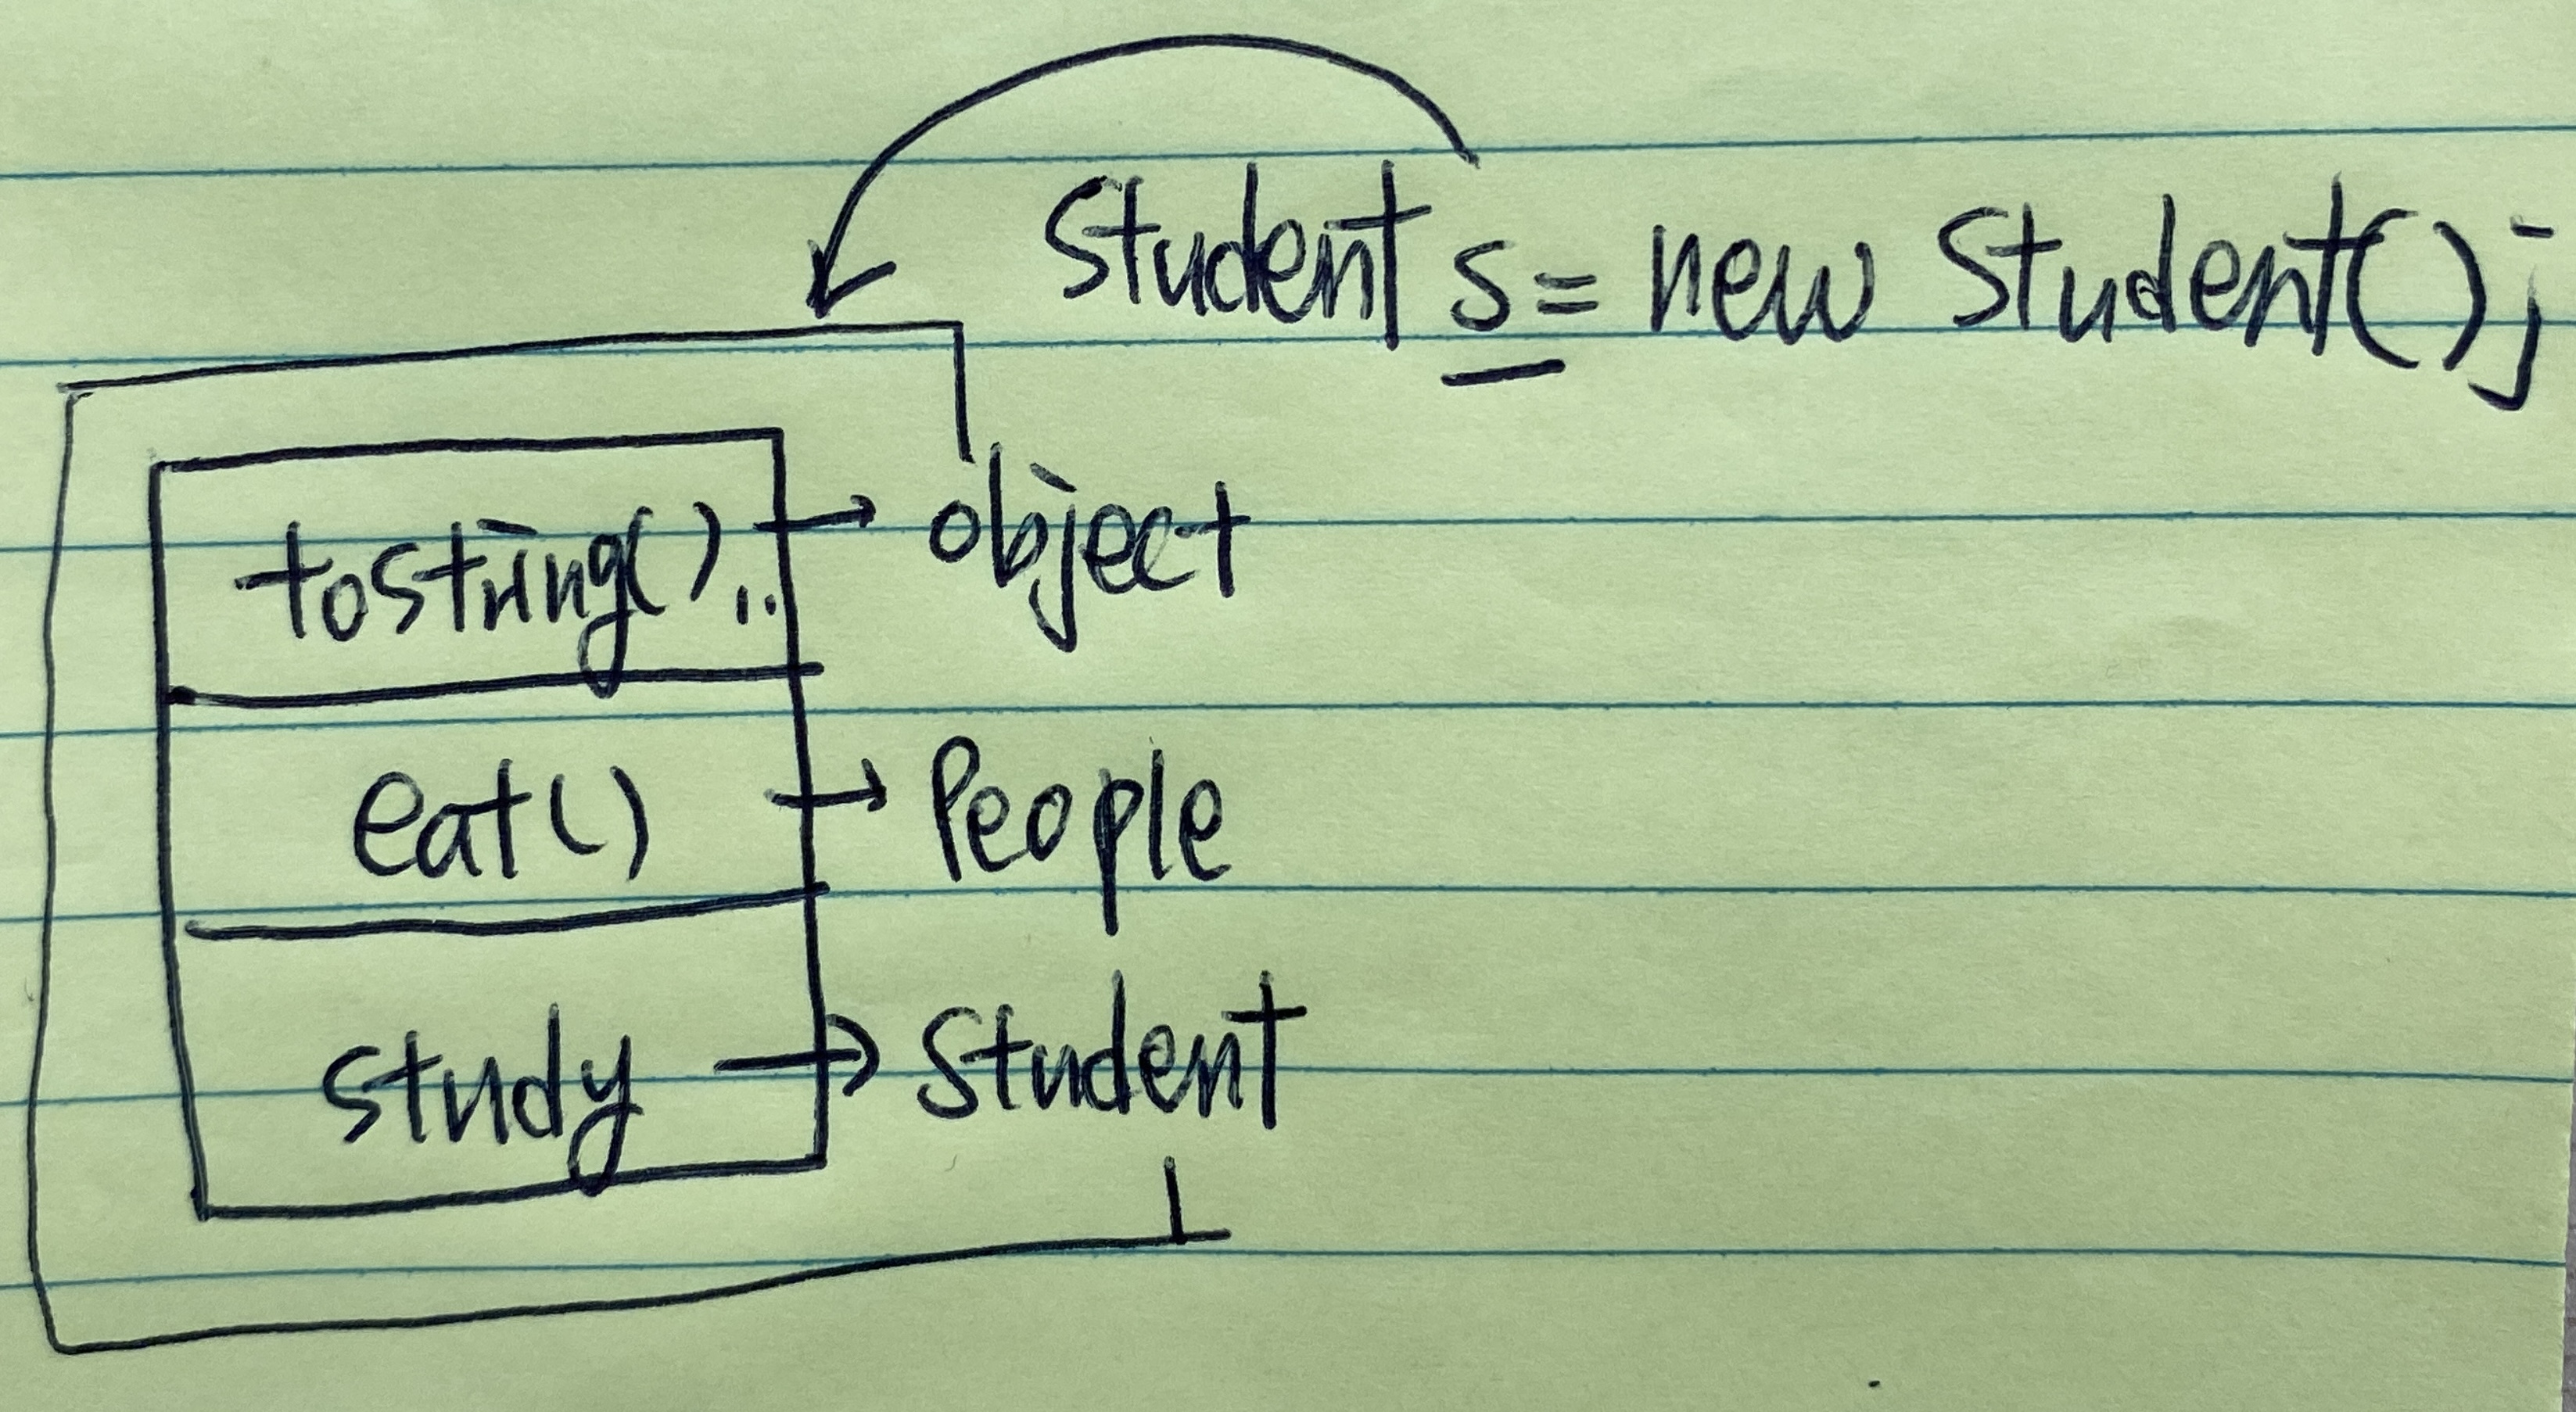 Student s = new Student();
toString()... → object
eat() → People
study → Student